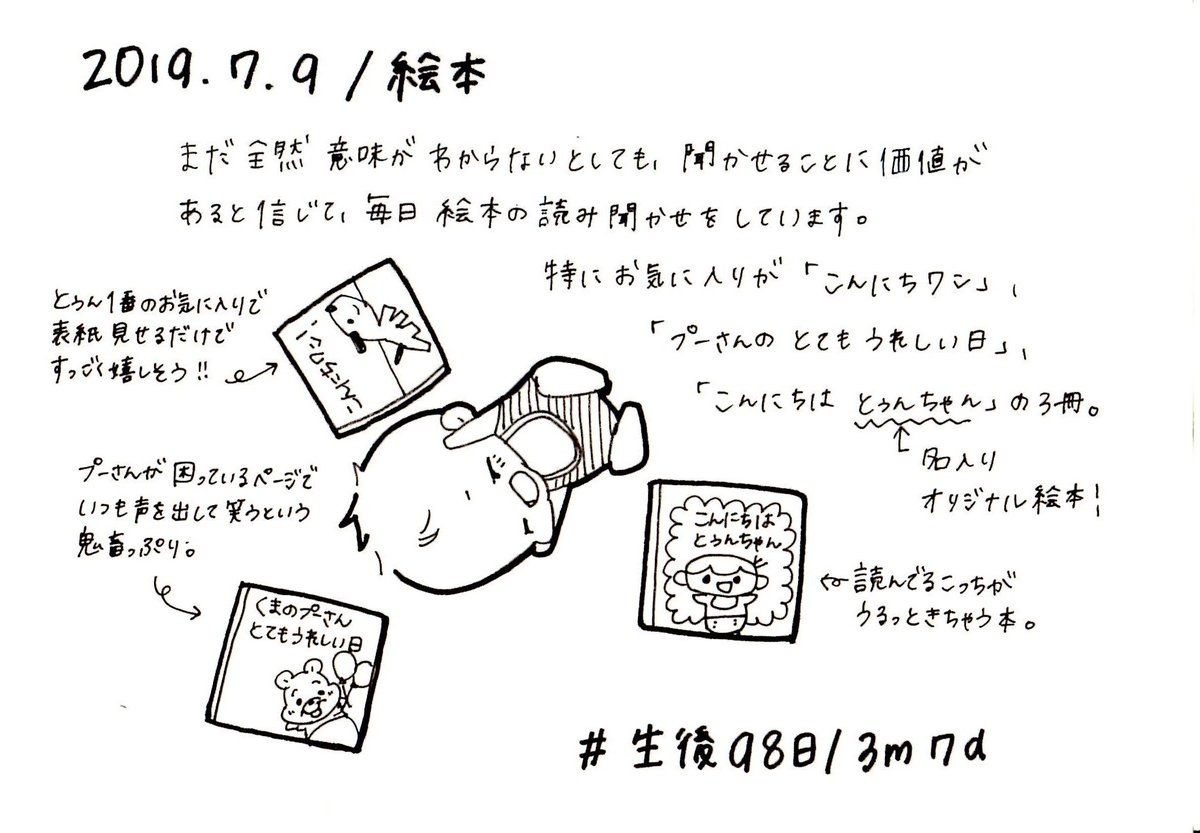 2019.7.9/絵本
まだ全然意味がわからないとしても、聞かせることに価値が
あると信じて、毎日絵本の読み聞かせをしています。
特にお気に入りが「こんにちワン」、
「プーさんのとてもうれしい日」、
「こんにちはとぅんちゃん」の3冊。
名入り
オリジナル絵本!
とぅん1番のお気に入りで
表紙見せるだけで
すっごく嬉しそう!!
こんにちワン!
プーさんが困っているページで
いつも声を出して笑うという
鬼畜っぷり。
くまのプーさん
とてもうれしい日
こんにちは
とぅんちゃん
読んでるこっちが
うるっときちゃう本。
#生後98日/3m7d